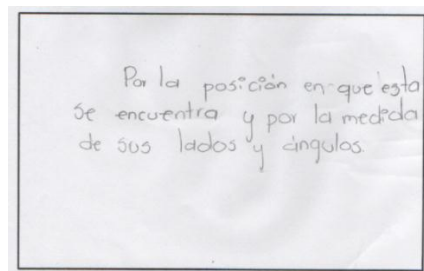 Por la posición en que esta
se encuentra y por la medida
de sus lados y ángulos.